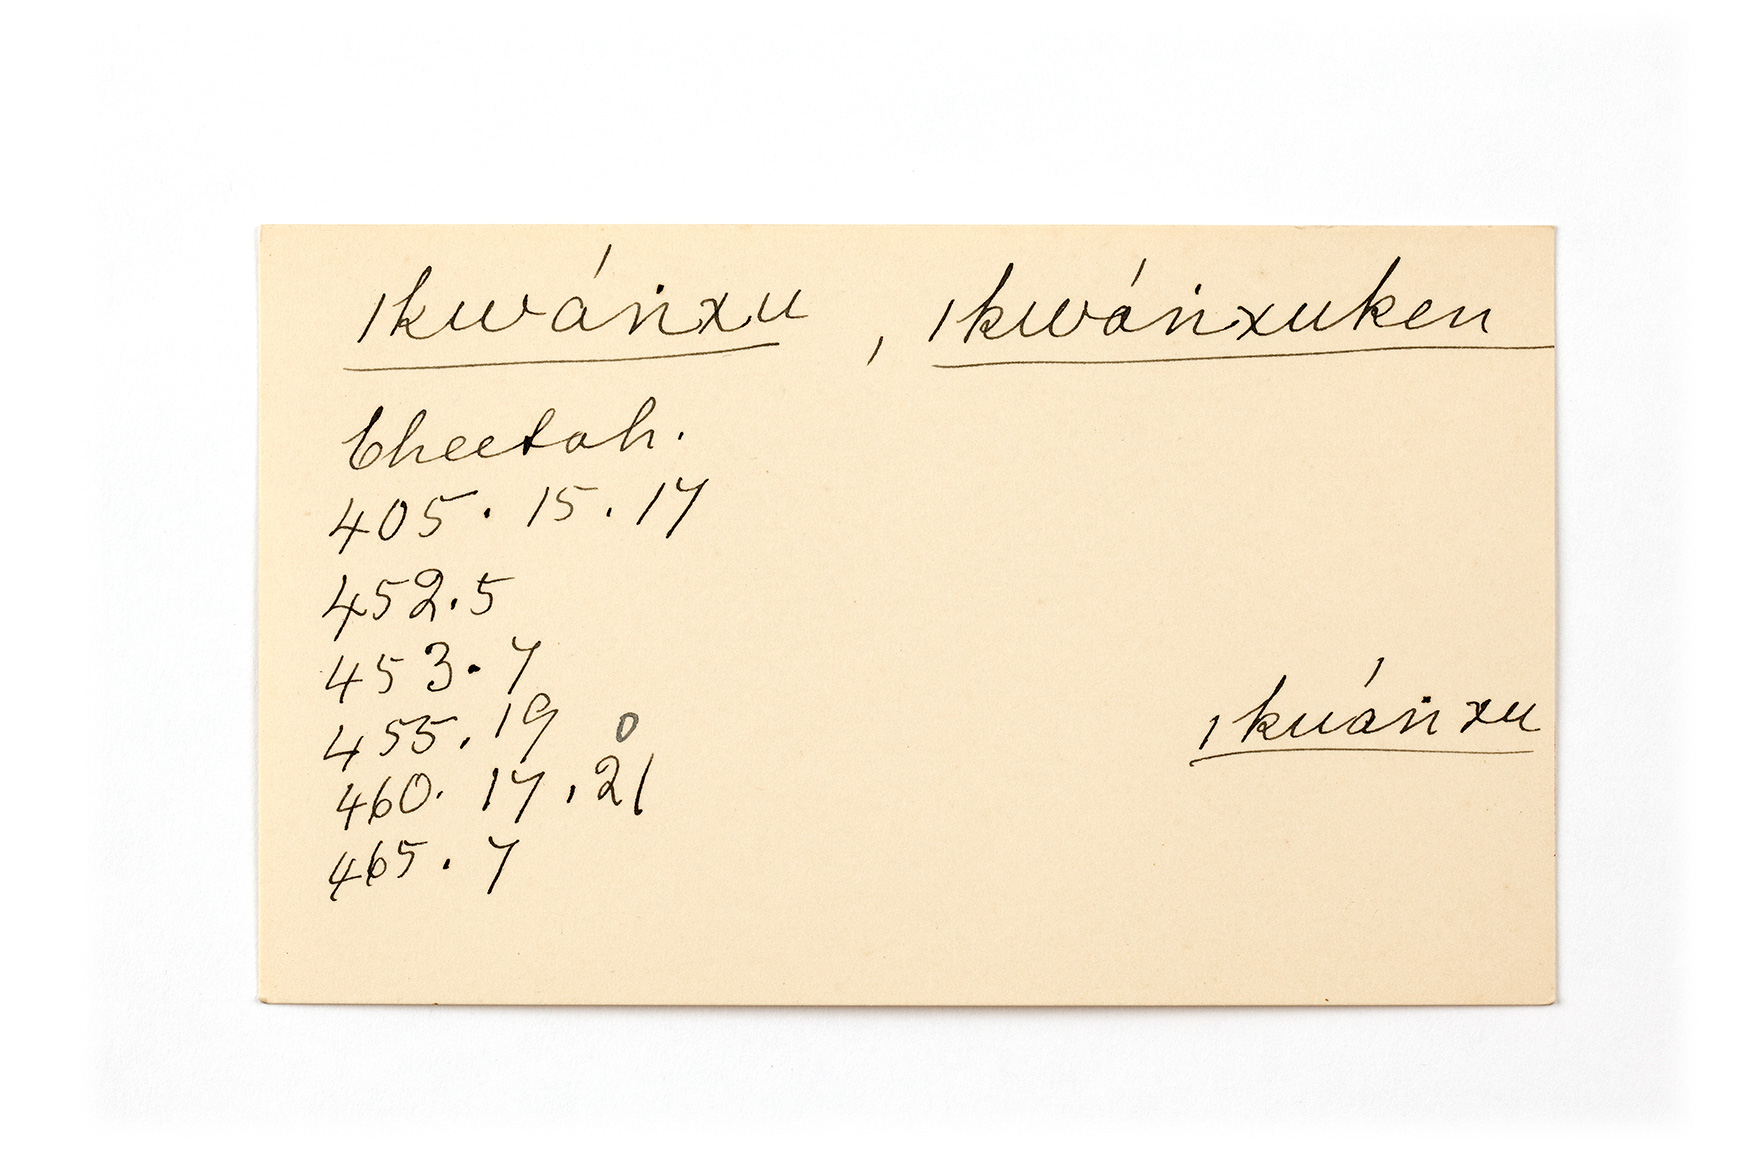 ıkwáṅxu , ıkwáṅxuken
Cheetah.
405. 15. 17
452.5
453. 7
455. 19
0
460. 17, 21
465. 7
ıkuáṅxu